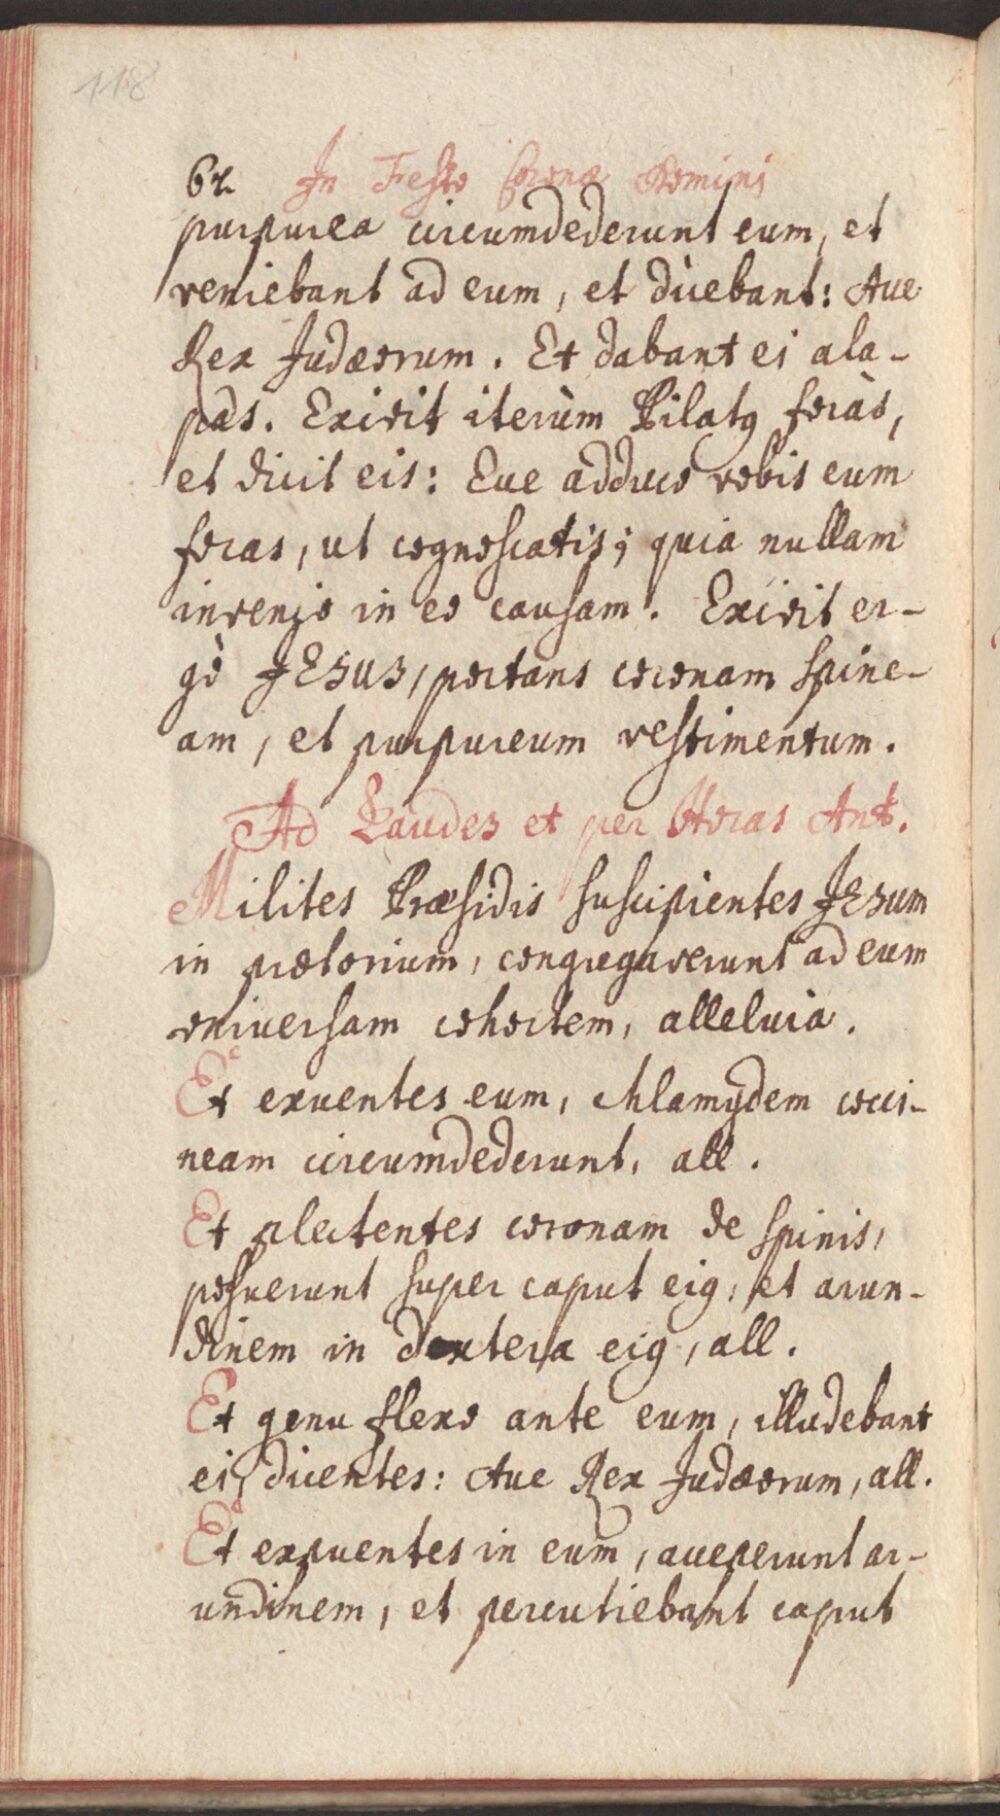 118
62 In Festo Coronæ Domini
purpurea circumdederunt eum, et
veniebant ad eum, et dicebant: Ave
Rex Judæorum. Et dabant ei ala-
pas. Exivit iterùm Pilatꝰ foràs,
et dicit eis: Ecce adduco vobis eum
foras, ut cognoscatis; quia nullam
invenio in eo causam. Exivit er-
gò JESUS, portans coronam spine-
am, et purpureum vestimentum.
Ad Laudes et per Horas Ant.
Milites Præsidis suscipientes JESUM
in prætorium, congregaverunt ad eum
universam cohortem, alleluia.
Et exuentes eum, chlamydem cocci-
neam circumdederunt, all.
Et plectentes coronam de spinis,
posuerunt super caput eiꝰ, et arun-
dinem in dextera eiꝰ, all.
Et genu flexo ante eum, illudebant
ei, dicentes: Ave Rex Judæorum, all.
Et expuentes in eum, acceperunt ar-
undinem, et percutiebant caput